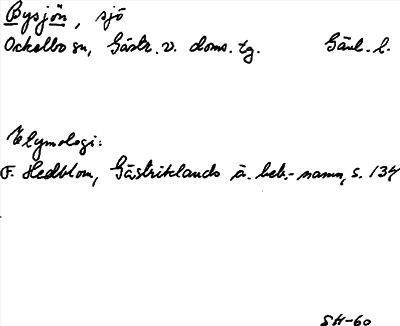 Bysjön, sjö
Ockelbo sn, Gästr. v. doms. tg. Gävl. l.
Etymologi:
F. Hedblom, Gästriklands ä. beb.-namn, s. 134
SH-60